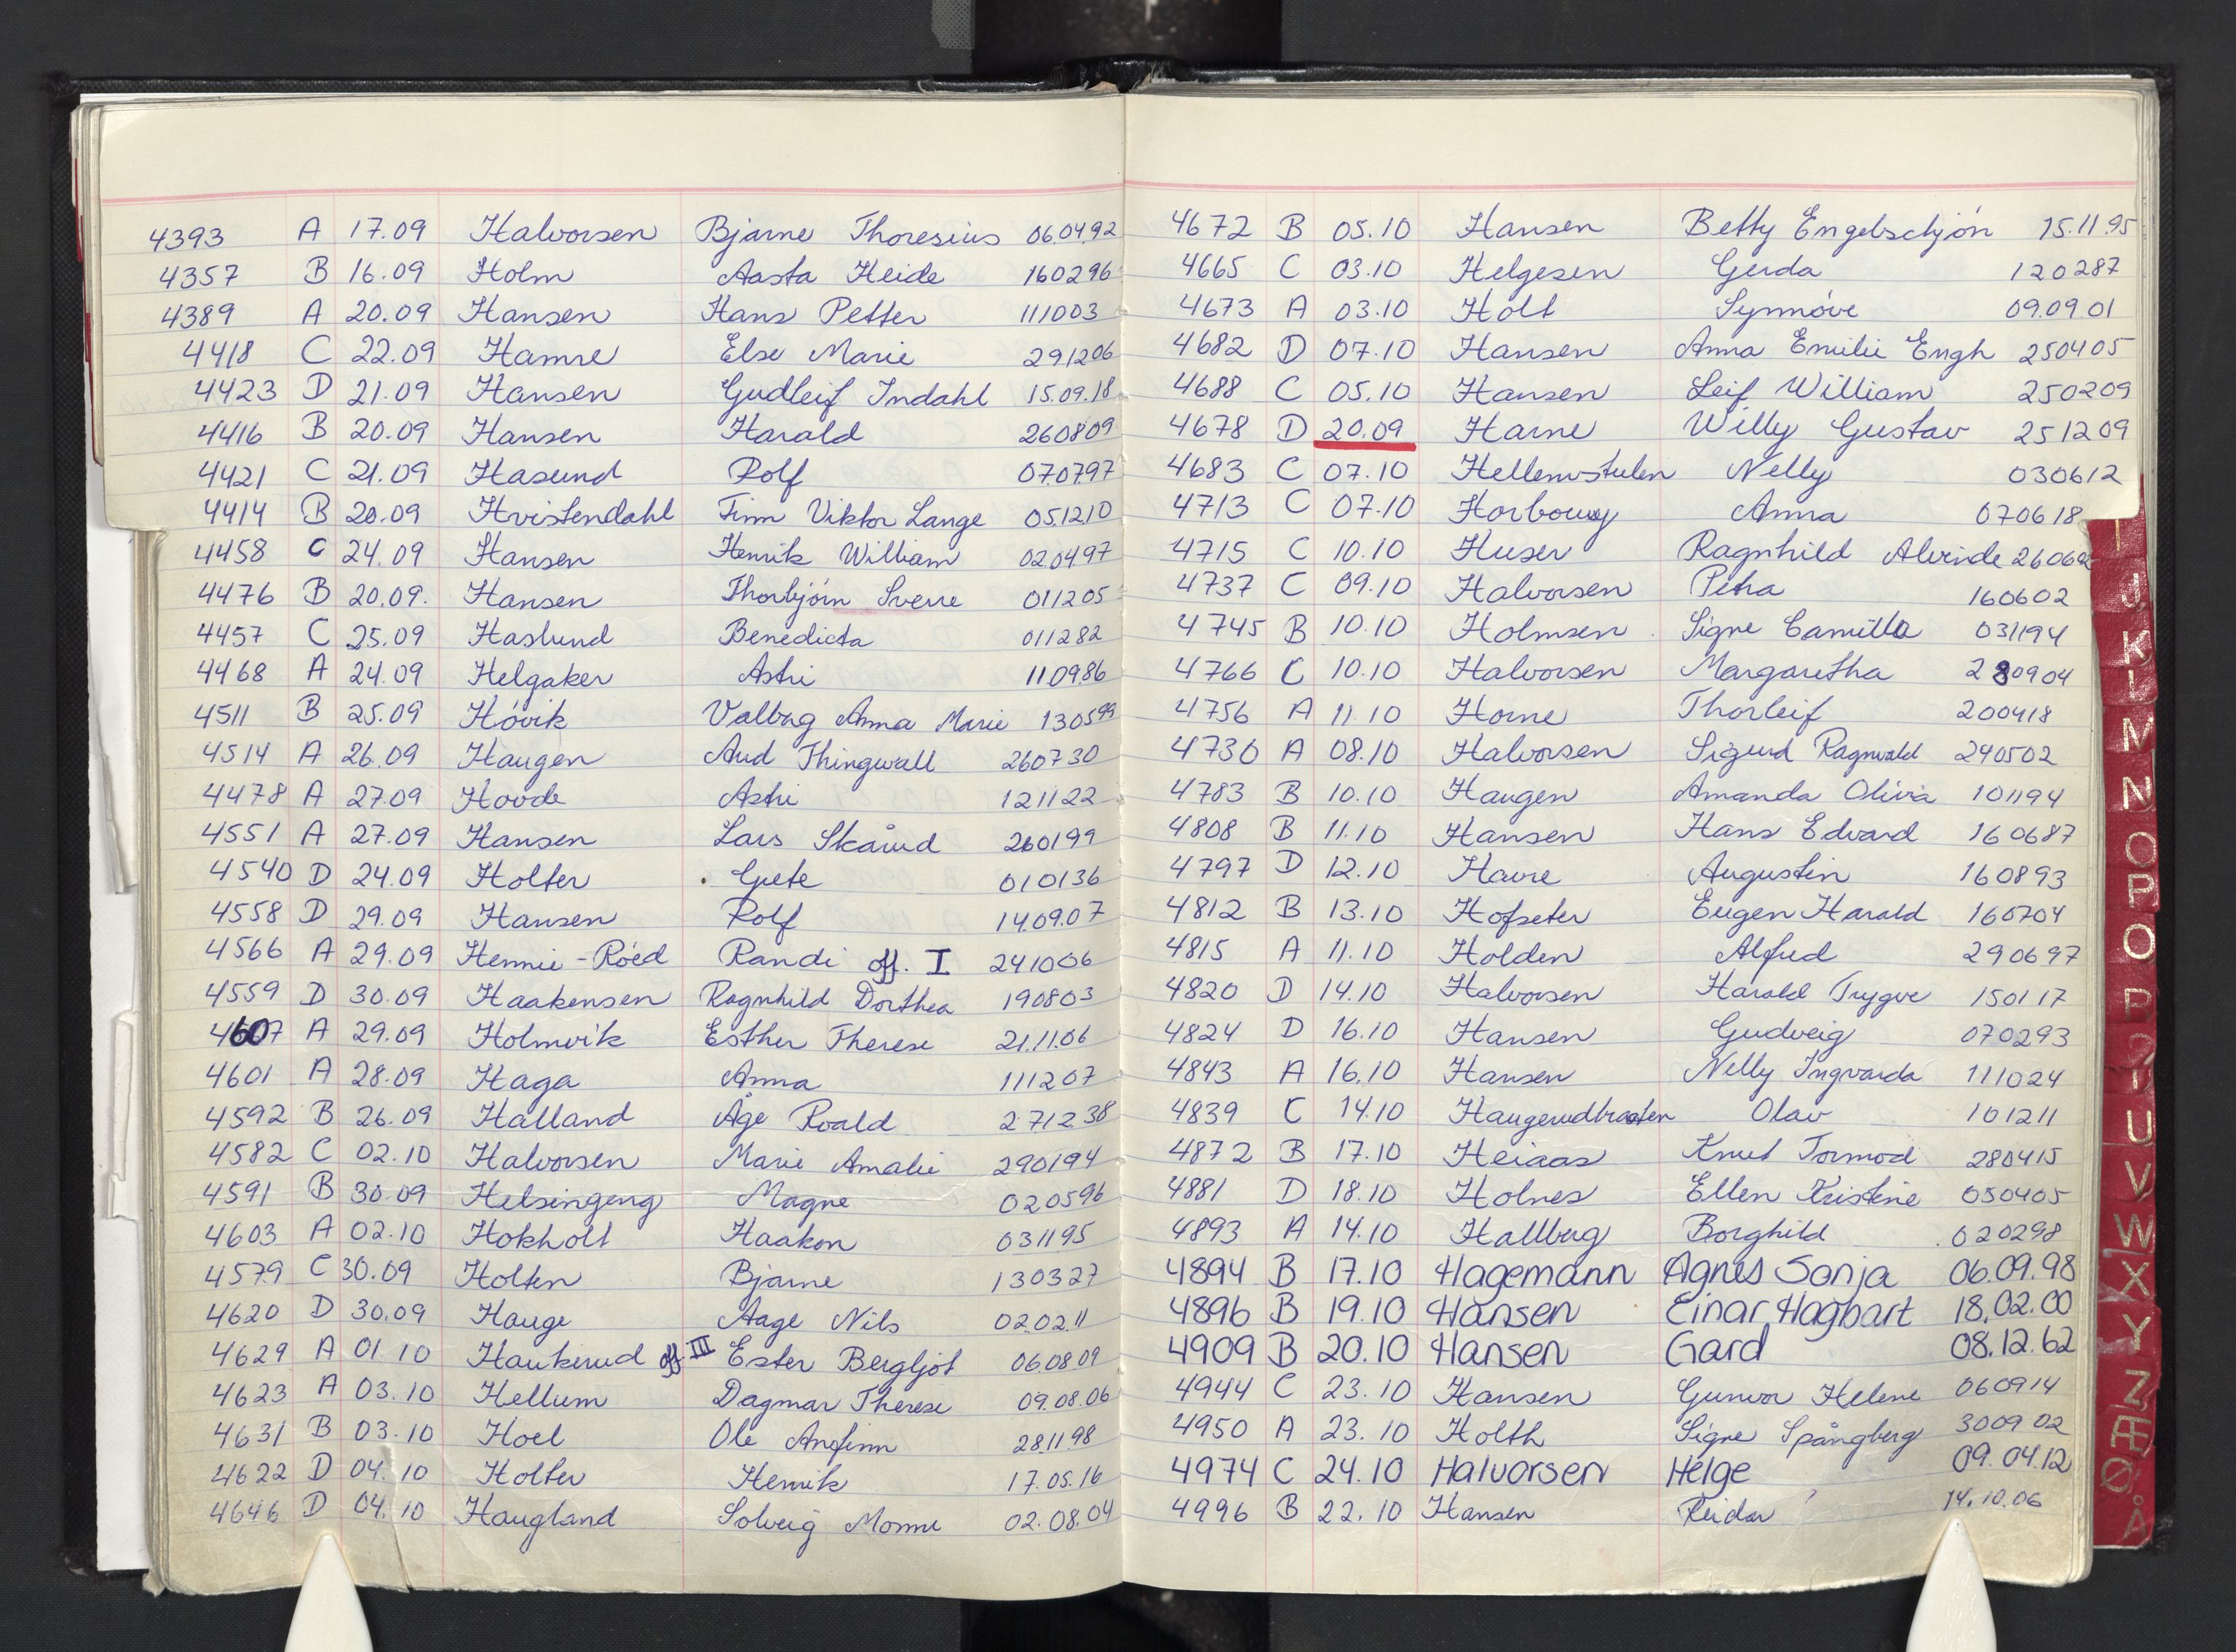 4393 A 17.09 Halvorsen Bjarne Thoresius 06.04.92
4357 B 16.09 Holm Aasta Heide 160296
4389 A 20.09 Hansen Hans Petter 111003
4418 C 22.09 Hamre Else Marie 291206
4423 D 21.09 Hansen Gudleif Indahl 15.09.18
4416 B 20.09 Hansen Harald 260809
4421 C 21.09 Hasund Rolf 070797
4414 B 20.09 Hvistendahl Finn Viktor Lange 051210
4458 C 24.09 Hansen Henrik William 020497
4476 B 20.09. Hansen Thorbjörn Sverre 011205
4457 C 25.09 Haslund Benedicta 011282
4468 A 24.09 Helgaker Astri 110986
4511 B 25.09 Hövik Valbrg Anna Marie 130599
4514 A 26.09 Haugen Aud Thingwall 260730
4478 A 27.09 Hovde Astri 121122
4551 A 27.09 Hansen Lars Skårud 260199
4540 D 24.09 Holter Grete 010136
4558 D 29.09 Hansen Rolf 14.09.07
4566 A 29.09 Hennie-Röed Randi off. I 241006
4559 D 30.09 Haakensen Ragnhild Dorthea 190803
4607 A 29.09 Holmvik Esther Therese 21.11.06
4601 A 28.09 Haga Anna 111207
4592 B 26.09 Halland Åge Roald 271238
4582 C 02.10 Halvorsen Marie Amalie 290194
4591 B 30.09 Helsingeng Magne 020596
4603 A 02.10 Hokholt Haakon 031195
4579 C 30.09 Holten Bjarne 130327
4620 D 30.09 Hauge Aage Nils 02.02.11
4629 A 01.10 Haukerud off III Ester Bergljot 06.08.09
4623 A 03.10 Hellum Dagmar Therese 09.08.06
4631 B 03.10 Hoel Ole Anfinn 28.11.98
4622 D 04.10 Holter Henrik 17.05.16
4646 D 04.10 Haugland Solveig Monne 02.08.04
4672 B 05.10 Hansen Betty Engelschjön 15.11.95
4665 C 03.10 Helgesen Gerda 120287
4673 A 03.10 Holt Synnöve 09.09.01
4682 D 07.10 Hansen Anna Emilie Engh 250405
4688 C 05.10 Hansen Leif William 250209
4678 D 20.09 Harne Willy Gustav 251209
4683 C 07.10 Hellemstulen Nelly 030612
4713 C 07.10 Horbowy Anna 070618
4715 C 10.10 Huser Ragnhild Alvinde 260602
4737 C 09.10 Halvorsen Petra 160602
4745 B 10.10 Holmsen Signe Camilla 031194
4766 C 10.10 Halvorsen Margaretha 280904
4756 A 11.10 Horne Thorleif 200418
4730 A 08.10 Halvorsen Sigurd Ragnvald 240502
4783 B 10.10 Haugen Amanda Olivia 101194
4808 B 11.10 Hansen Hans Edvard 160687
4797 D 12.10 Havre Augustin 160893
4812 B 13.10 Hofseter Eugen Harald 160704
4815 A 11.10 Holden Alfred 290697
4820 D 14.10 Halvorsen Harald Trygve 150117
4824 D 16.10 Hansen Gudveig 070293
4843 A 16.10 Hansen Nelly Ingvarda 111024
4839 C 14.10 Haugerudbraaten Olav 101211
4872 B 17.10 Heiaas Knut Tormod 280415
4881 D 18.10 Holnes Ellen Kristine 050405
4893 A 14.10 Hallberg Borghild 020298
4894 B 17.10 Hagemann Agnes Sonja 06.09.98
4896 B 19.10 Hansen Einar Hagbart 18.02.00
4909 B 20.10 Hansen Gard 08.12.62
4944 C 23.10 Hansen Gunvor Helene 060914
4950 A 23.10 Holth Signe Spångberg 300902
4974 C 24.10 Halvorsen Helge 09.04.12
4996 B 22.10 Hansen Reidar 14.10.06
I
J
K
L
M
N
O
P
O
P
U
V
W
X
Y
Z
Æ
Ø
Å